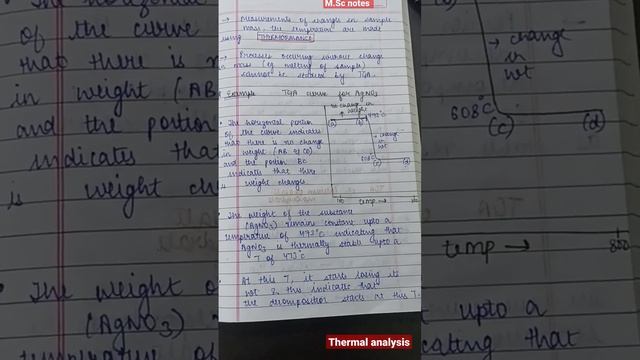 M.Sc notes
→ Measurements of changes in sample
mass, the temperature are made
using THERMOBALANCE
→ Processes occurring without change
in mass (eg melting of sample)
cannot be studied by TGA.
Example TGA curve for AgNO3
no change in
↑ weight
(a) (b) 473°C
→ change
in
wt
608°C
(c) (d)
100
temp →
800
• The horizontal portion
of the curve indicates
that there is no change
in weight (AB & CD)
and the portion BC
indicates that there
is weight change
• The weight of the substance
(AgNO3) remain constant upto a
temperature of 473°C indicating that
AgNO3 is thermally stable upto a
T of 473°C
• At this T, it starts losing its
wt & this indicates that
the decomposition starts at this T.
The horizontal
of the curve
that there is n
in weight (AB
and the portion
indicates that
is weight ch
The weight of
(AgNO3)
→ change
in
wt
608°C
(c) (d)
temp →
800
upto a
cating that
Thermal analysis